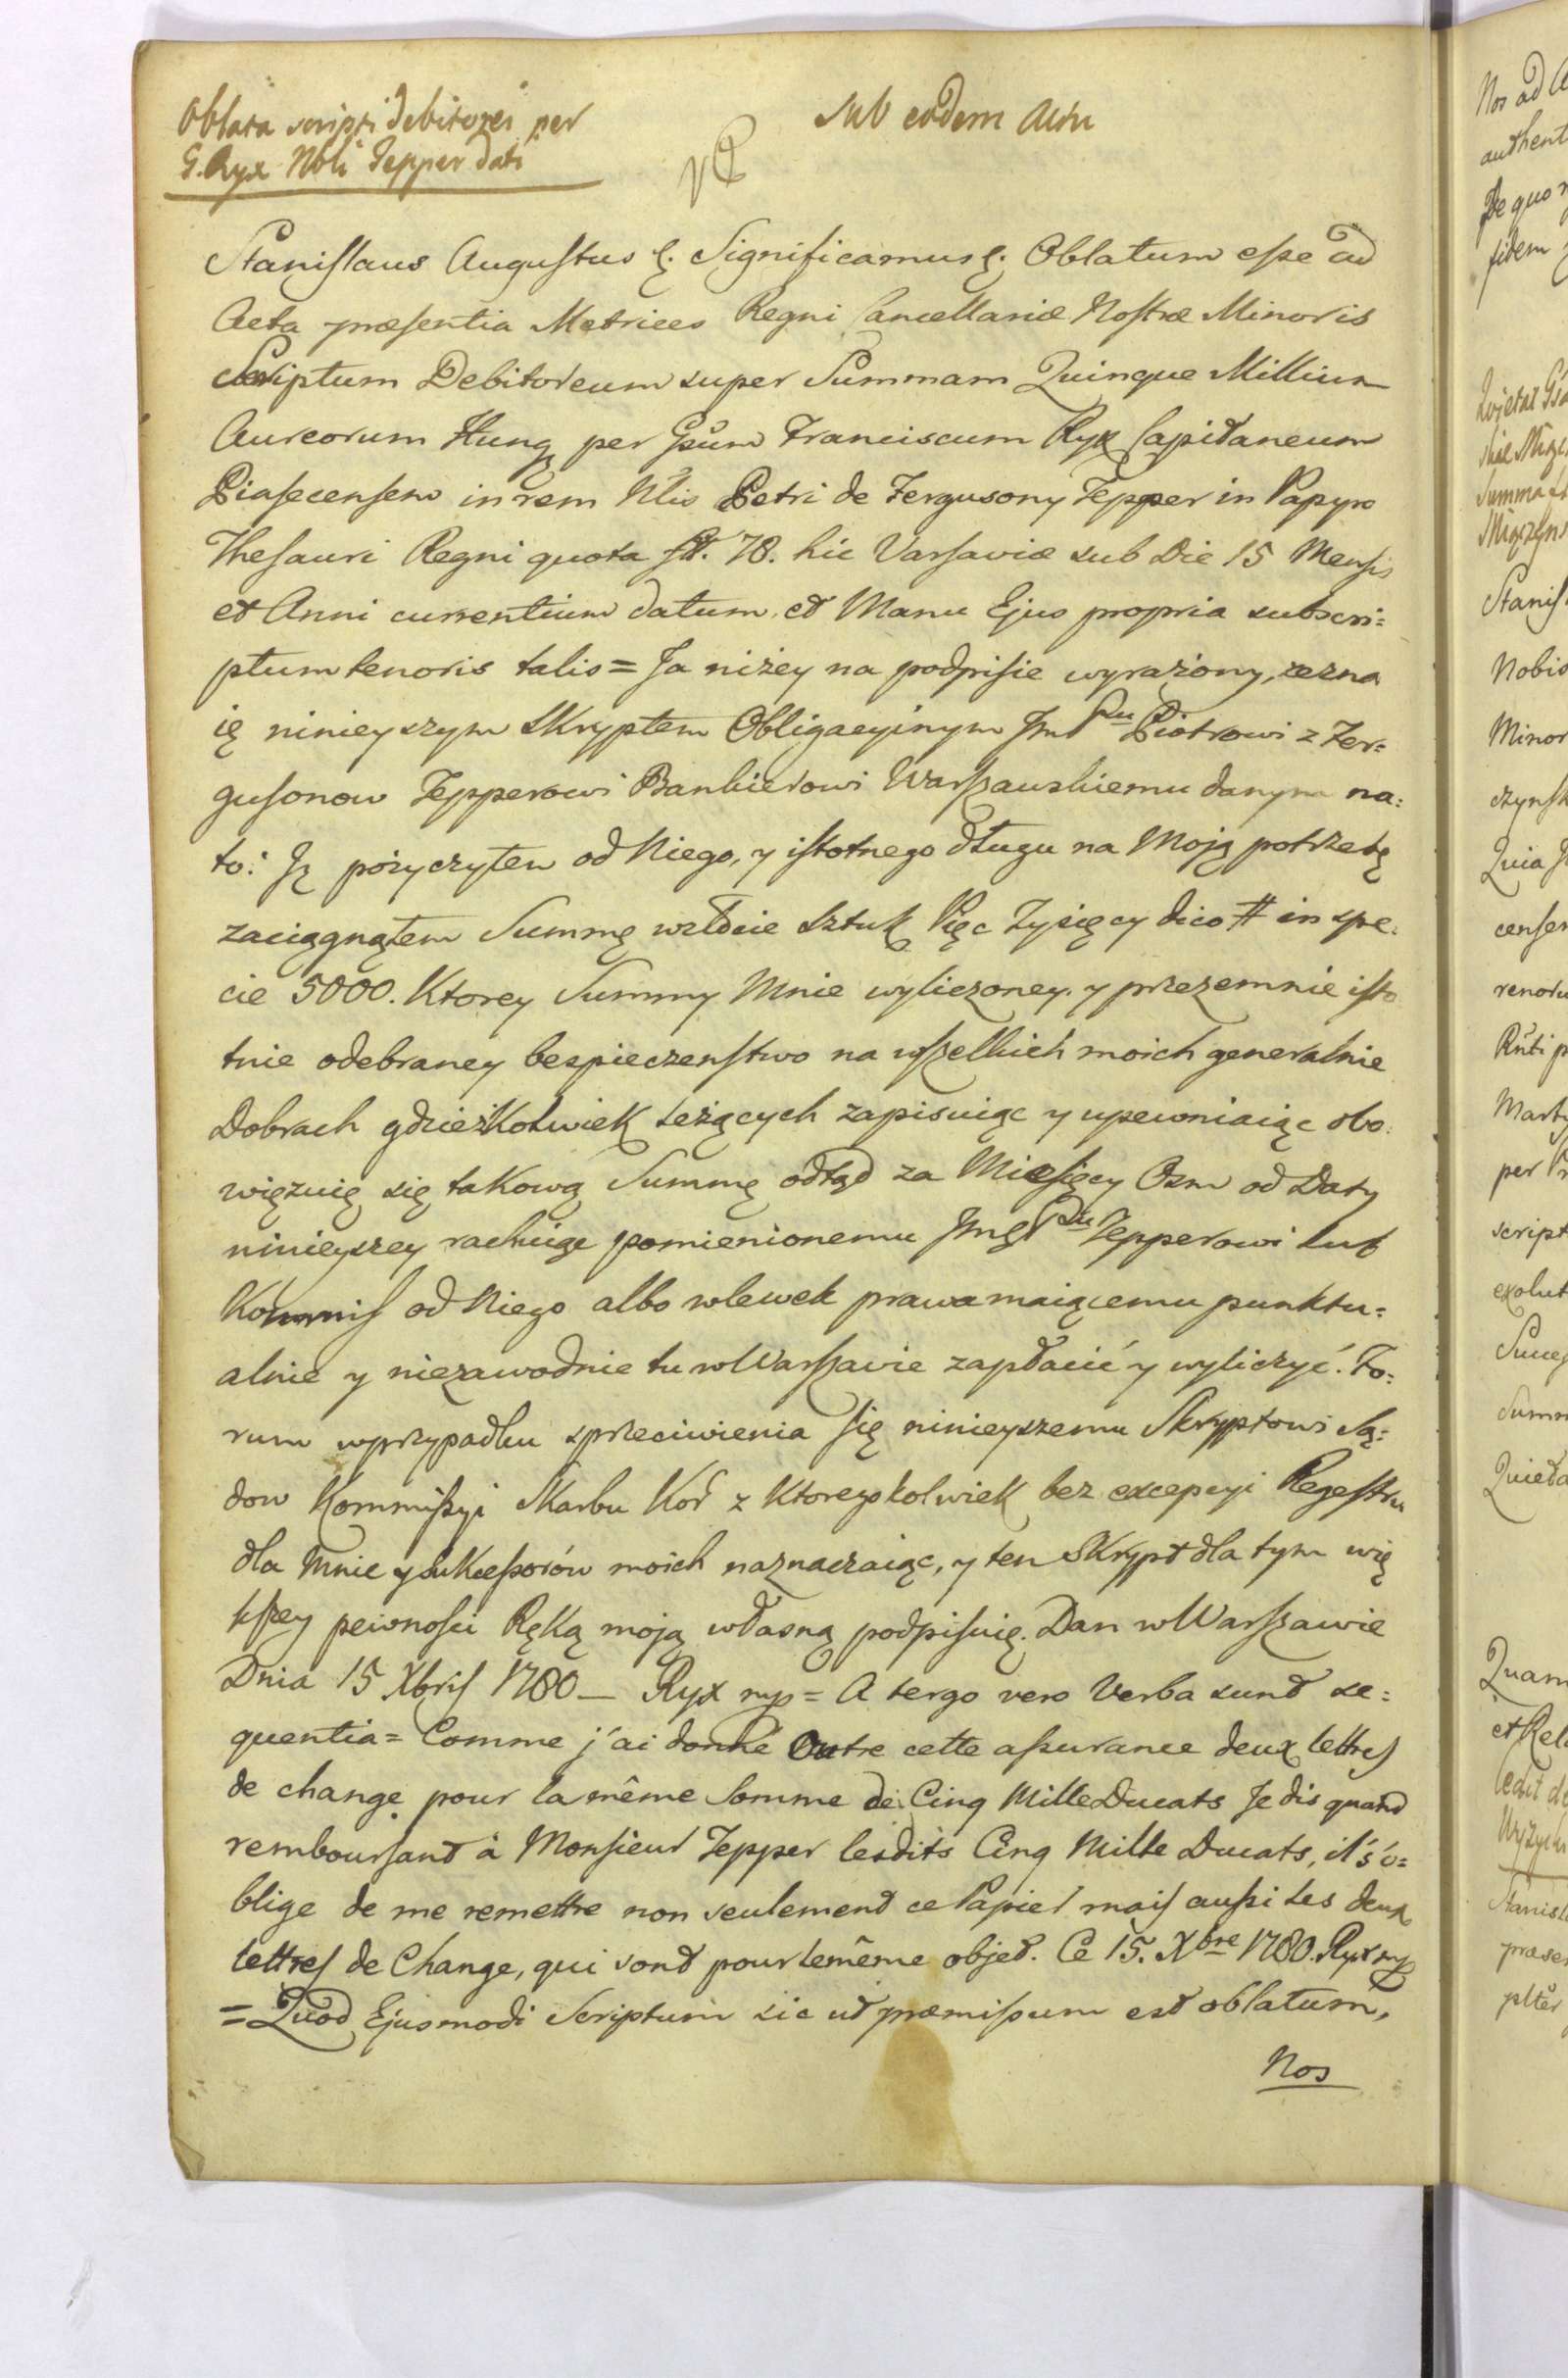 Oblata scripti debitorei per
G. Ryx Nbli Tepper dati
Sub eodem Actu
Stanislaus Augustus &. Significamus &. Oblatum esse ad
Acta præsentia Metrices Regni Cancellariæ Nostræ Minoris
Scriptum Debitoreum super Summam Quinque Millium
Aureorum Hung per Gsum Franciscum Ryx Capitaneum
Piasecensem in rem Nlis Petri de Fergusony Tepper in Papyro
Thesauri Regni quota fl. 78. hic Varsaviæ sub Die 15 Mensis
et Anni currentium datum, et Manu Ejus propria subscri=
ptum tenoris talis = Ja niżey na podpisie wyrażony, zezna
ię ninieyszym Skryptem Obligacyinym JmPnu Piotrowi z Fer=
gusonow Tepperowi Bankierowi Warszawskiemu danym na=
to: Jż pożyczyłem od Niego, y istotnego długu na Moją potrzebę
zaciągnąłem Summę w złocie Sztuk Pięc Tysięcy dico # in spe=
cie 5000. Ktorey Summy Mnie wyliczoney y przezemnie isto
tnie odebraney bespieczenstwo na wszelkich moich generalnie
Dobrach gdzieżkolwiek leżących zapisuiąc y upewniaiąc obo=
więzuię się takową Summę odtąd za Miesięcy Osm od Daty
ninieyszey rachuiąc pomienionemu JmgPnu Tepperowi lub
Kommis od Niego albo wlewek prawa maiącemu punktu=
alnie y niezawodnie tu w Warszawie zapłacić y wyliczyć. Fo=
rum w przypadku sprzeciwienia się ninieyszemu Skryptowi Są=
dow Kommissyi Skarbu Kor z Ktoregokolwiek bez excepcyi Regestru
dla Mnie y Sukcessorów moich naznaczaiąc, y ten Skrypt dla tym wię
kszey pewnosci Ręką moją własną podpisuię. Dan w Warszawie
Dnia 15 Xbris 1780 — Ryx mp = A tergo vero Verba sunt se=
quentia = Comme j'ai donné Outre cette assurance deux lettres
de change pour la même Somme de Cinq Mille Ducats Je dis quand
remboursant à Monsieur Tepper lesdits Cinq Mille Ducats, il s'o=
blige de me remettre non seulement ce Papier mais aussi les deux
lettres de Change, qui sont pour le même objet. Ce 15. Xbre 1780. Ryx mp
= Quod Ejusmodi Scriptum sic ut præmissum est oblatum,
Nos
Nos ad
authent
De quo
fidem
Summa
Stanis
Nobis
Minor
czynsk
Quia
censem
Ruti p
per
script
exolut
Quam
et Rela
Stanisl
præse